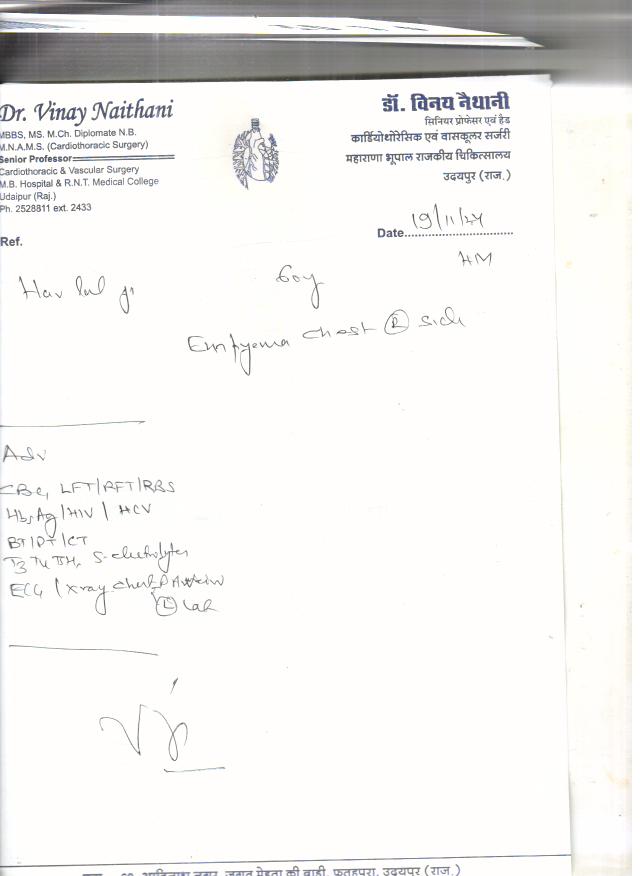 Dr. Vinay Naithani
MBBS, MS. M.Ch. Diplomate N.B.
M.N.A.M.S. (Cardiothoracic Surgery)
Senior Professor
Cardiothoracic & Vascular Surgery
M.B. Hospital & R.N.T. Medical College
Udaipur (Raj.)
Ph. 2528811 ext. 2433
डॉ. विनय नैथानी
सिनियर प्रोफेसर एवं हैड
कार्डियोथोरेसिक एवं वासकूलर सर्जरी
महाराणा भूपाल राजकीय चिकित्सालय
उदयपुर (राज.)
Ref.
Date 19/11/24
Har lal ji 60y HM
Empyema chest (R) side
Adv
CBC, LFT/RFT/RBS
HbsAg/HIV/HCV
BT/PT/CT
T3 T4 TSH, S-electrolytes
ECG/Xray Chest PA view
(L) Lat
नगर, जगत मेहता की बाड़ी, फतहपुरा, उदयपुर (राज.)